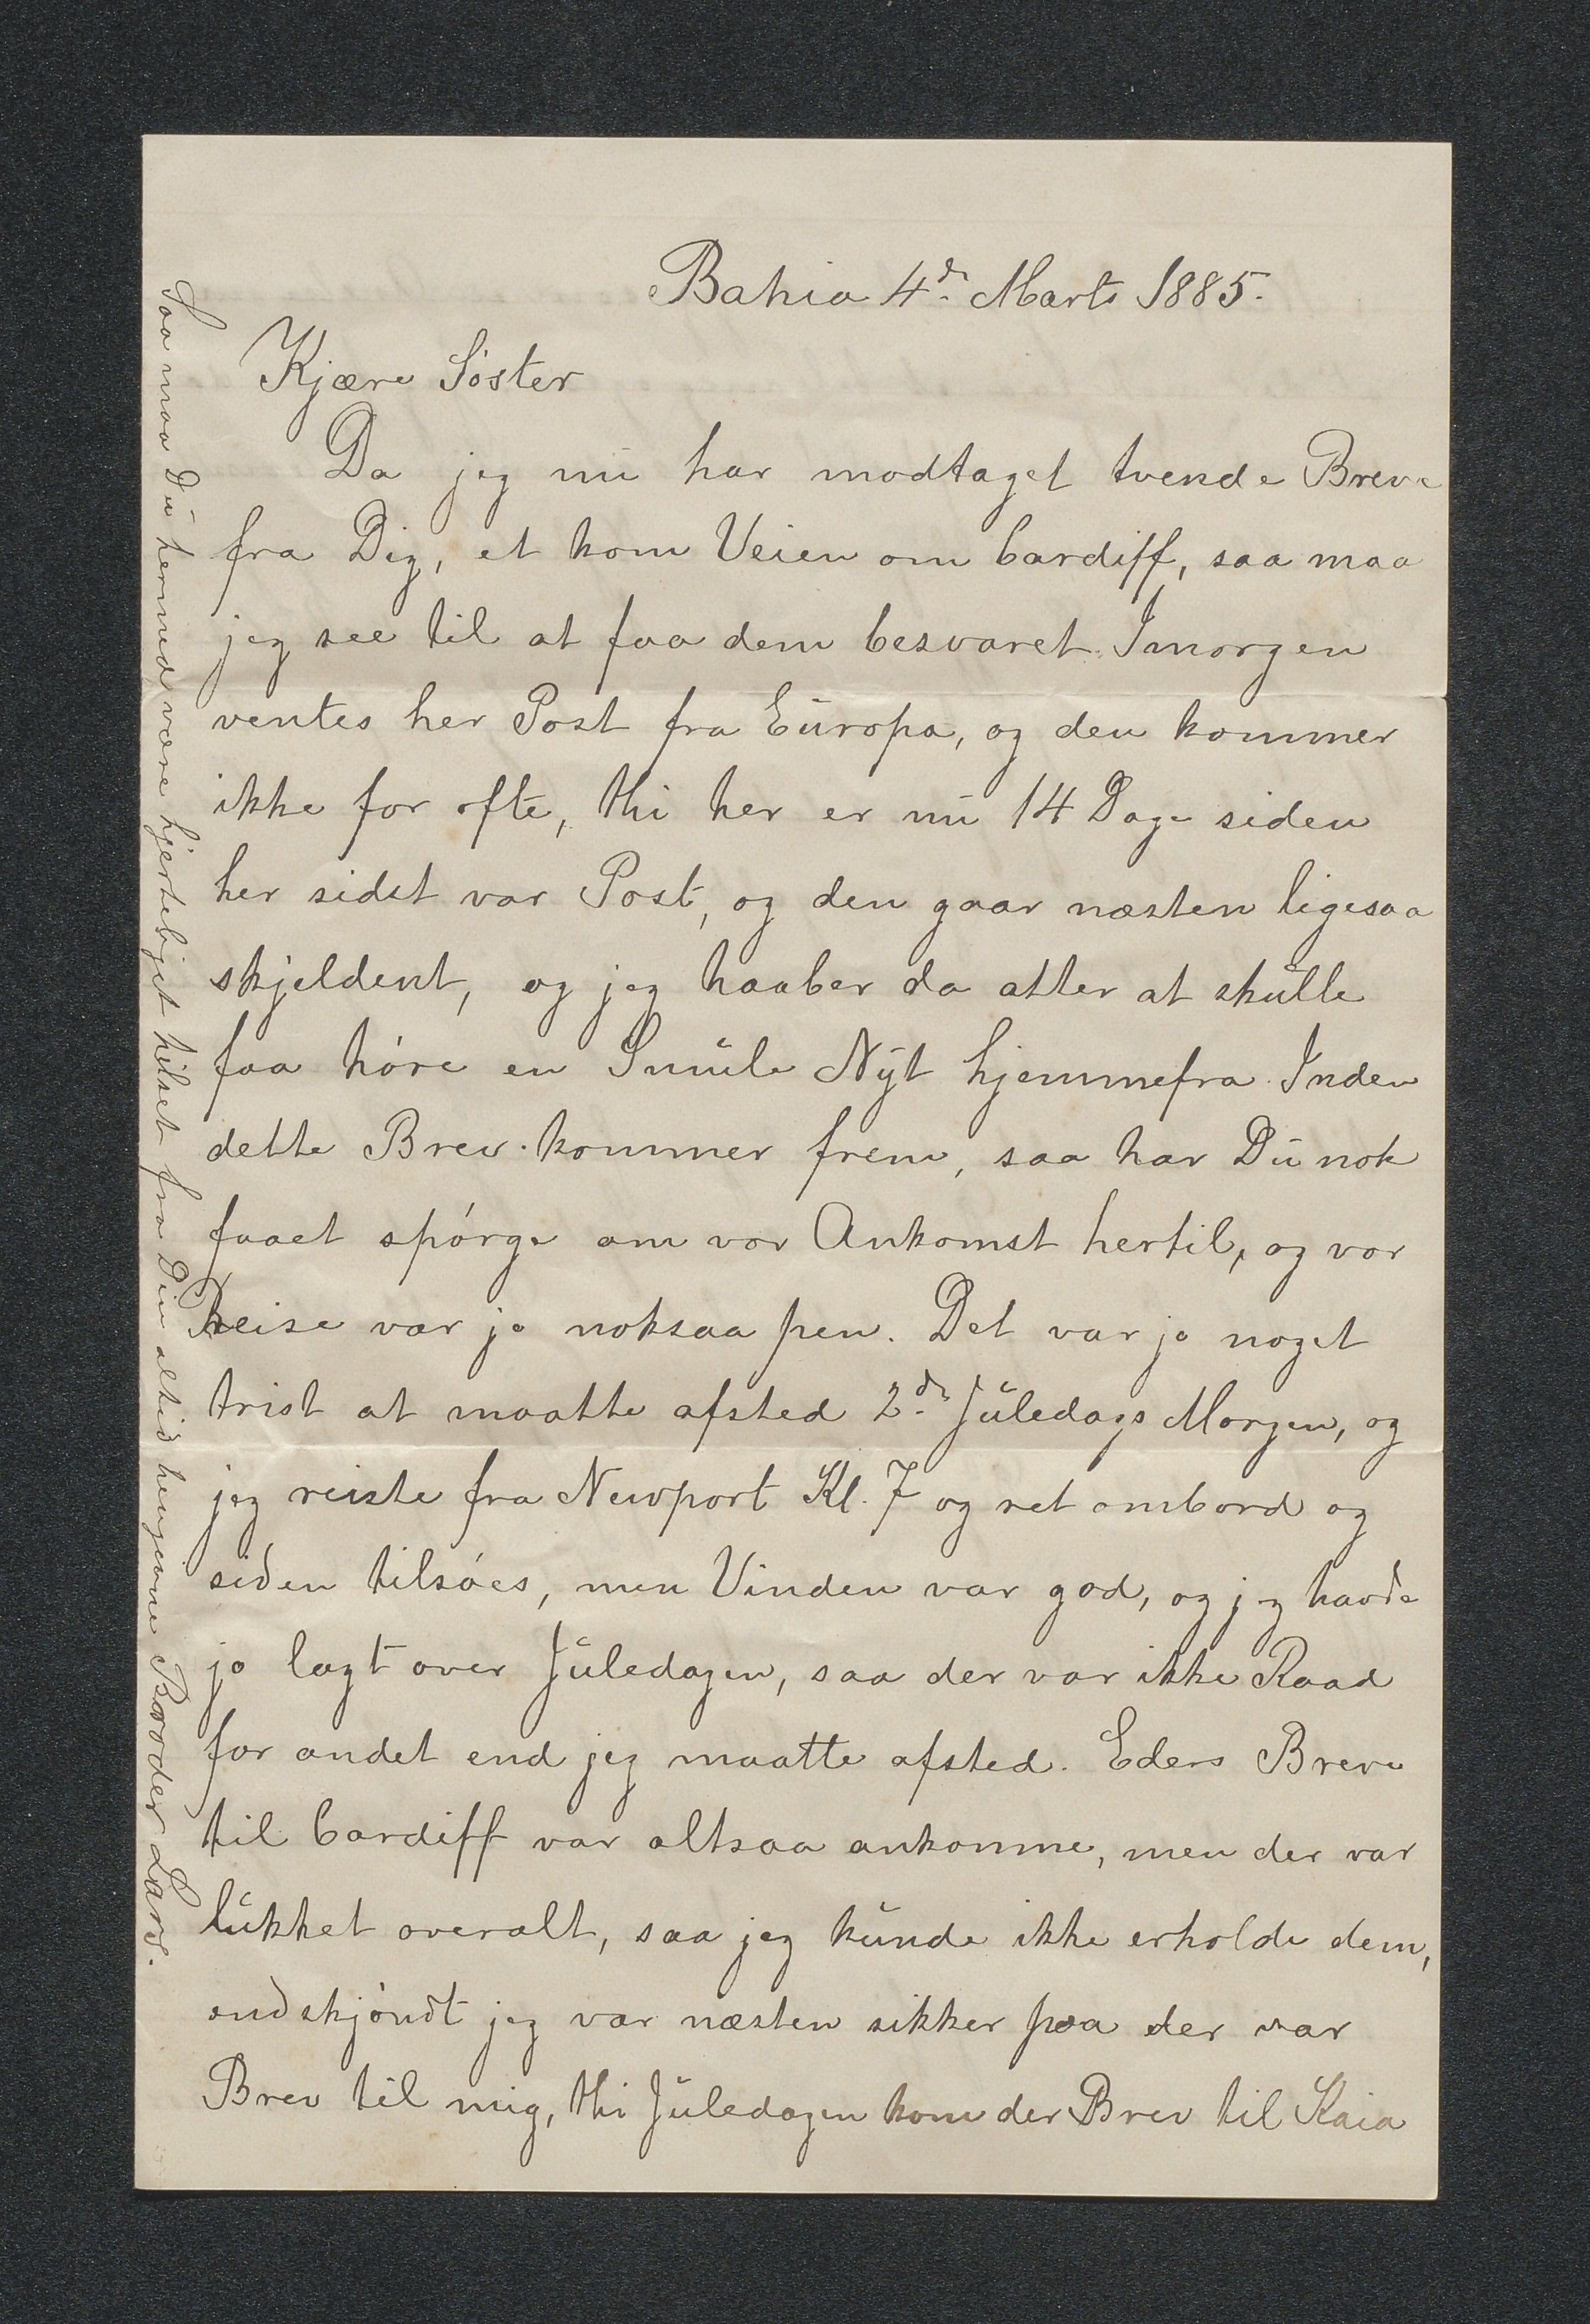 Bahia 4de Marts 1885.
Kjære Söster
Da jeg nu har modtaget tvende Breve
fra Dig, et kom Veien om Cardiff, saa maa
jeg see til at faa dem besvaret. Imorgen
ventes her Post fra Europa, og den kommer
ikke for ofte, thi her er nu 14 Dage siden
her sidst var Post, og den gaar næsten ligesaa
skjeldent, og jeg haaber da atter at skulle
faa höre en Smule Nyt hjemmefra. Inden
dette Brev kommer frem, saa har Du nok
faaet spörge om vor Ankomst hertil, og vor
Reise var jo noksaa pen. Det var jo noget
trist at maatte afsted 2den Juledags Morgen, og
jeg reiste fra Newport Kl. 7 og ret ombord og
siden tilsöes, men Vinden var god, og jeg havde
jo lagt over Juledagen, saa der var ikke Raad
for andet end jeg maatte afsted. Eders Breve
til Cardiff var altsaa ankomne, men der var
lukket overalt, saa jeg kunde ikke erholde dem,
endskjöndt jeg var næsten sikker paa der var
Brev til mig, thi Juledagen kom der Brev til Kaia
Saa maa Du hermed være hjerteligst hilset fra Din altid hengivne Broder Lars.